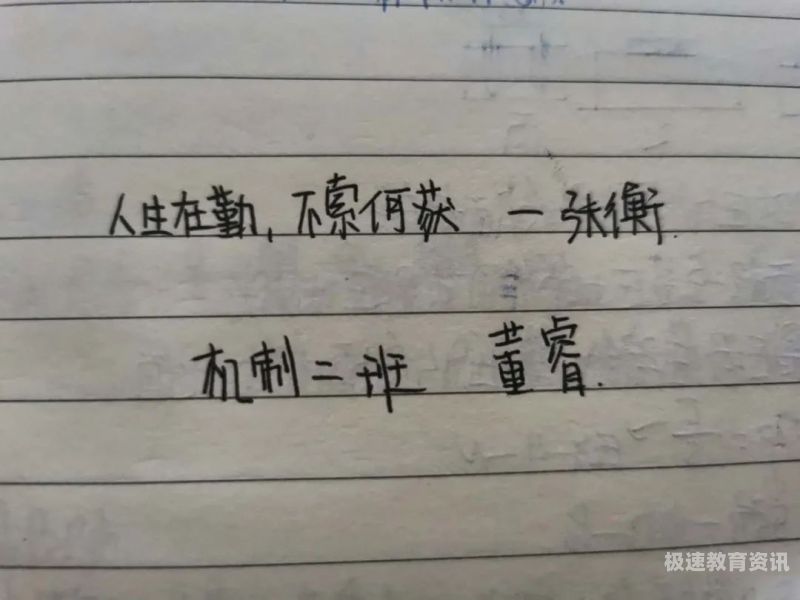 人生在勤,不索何获 —张衡.
机制二班 董睿.
极速教育资讯